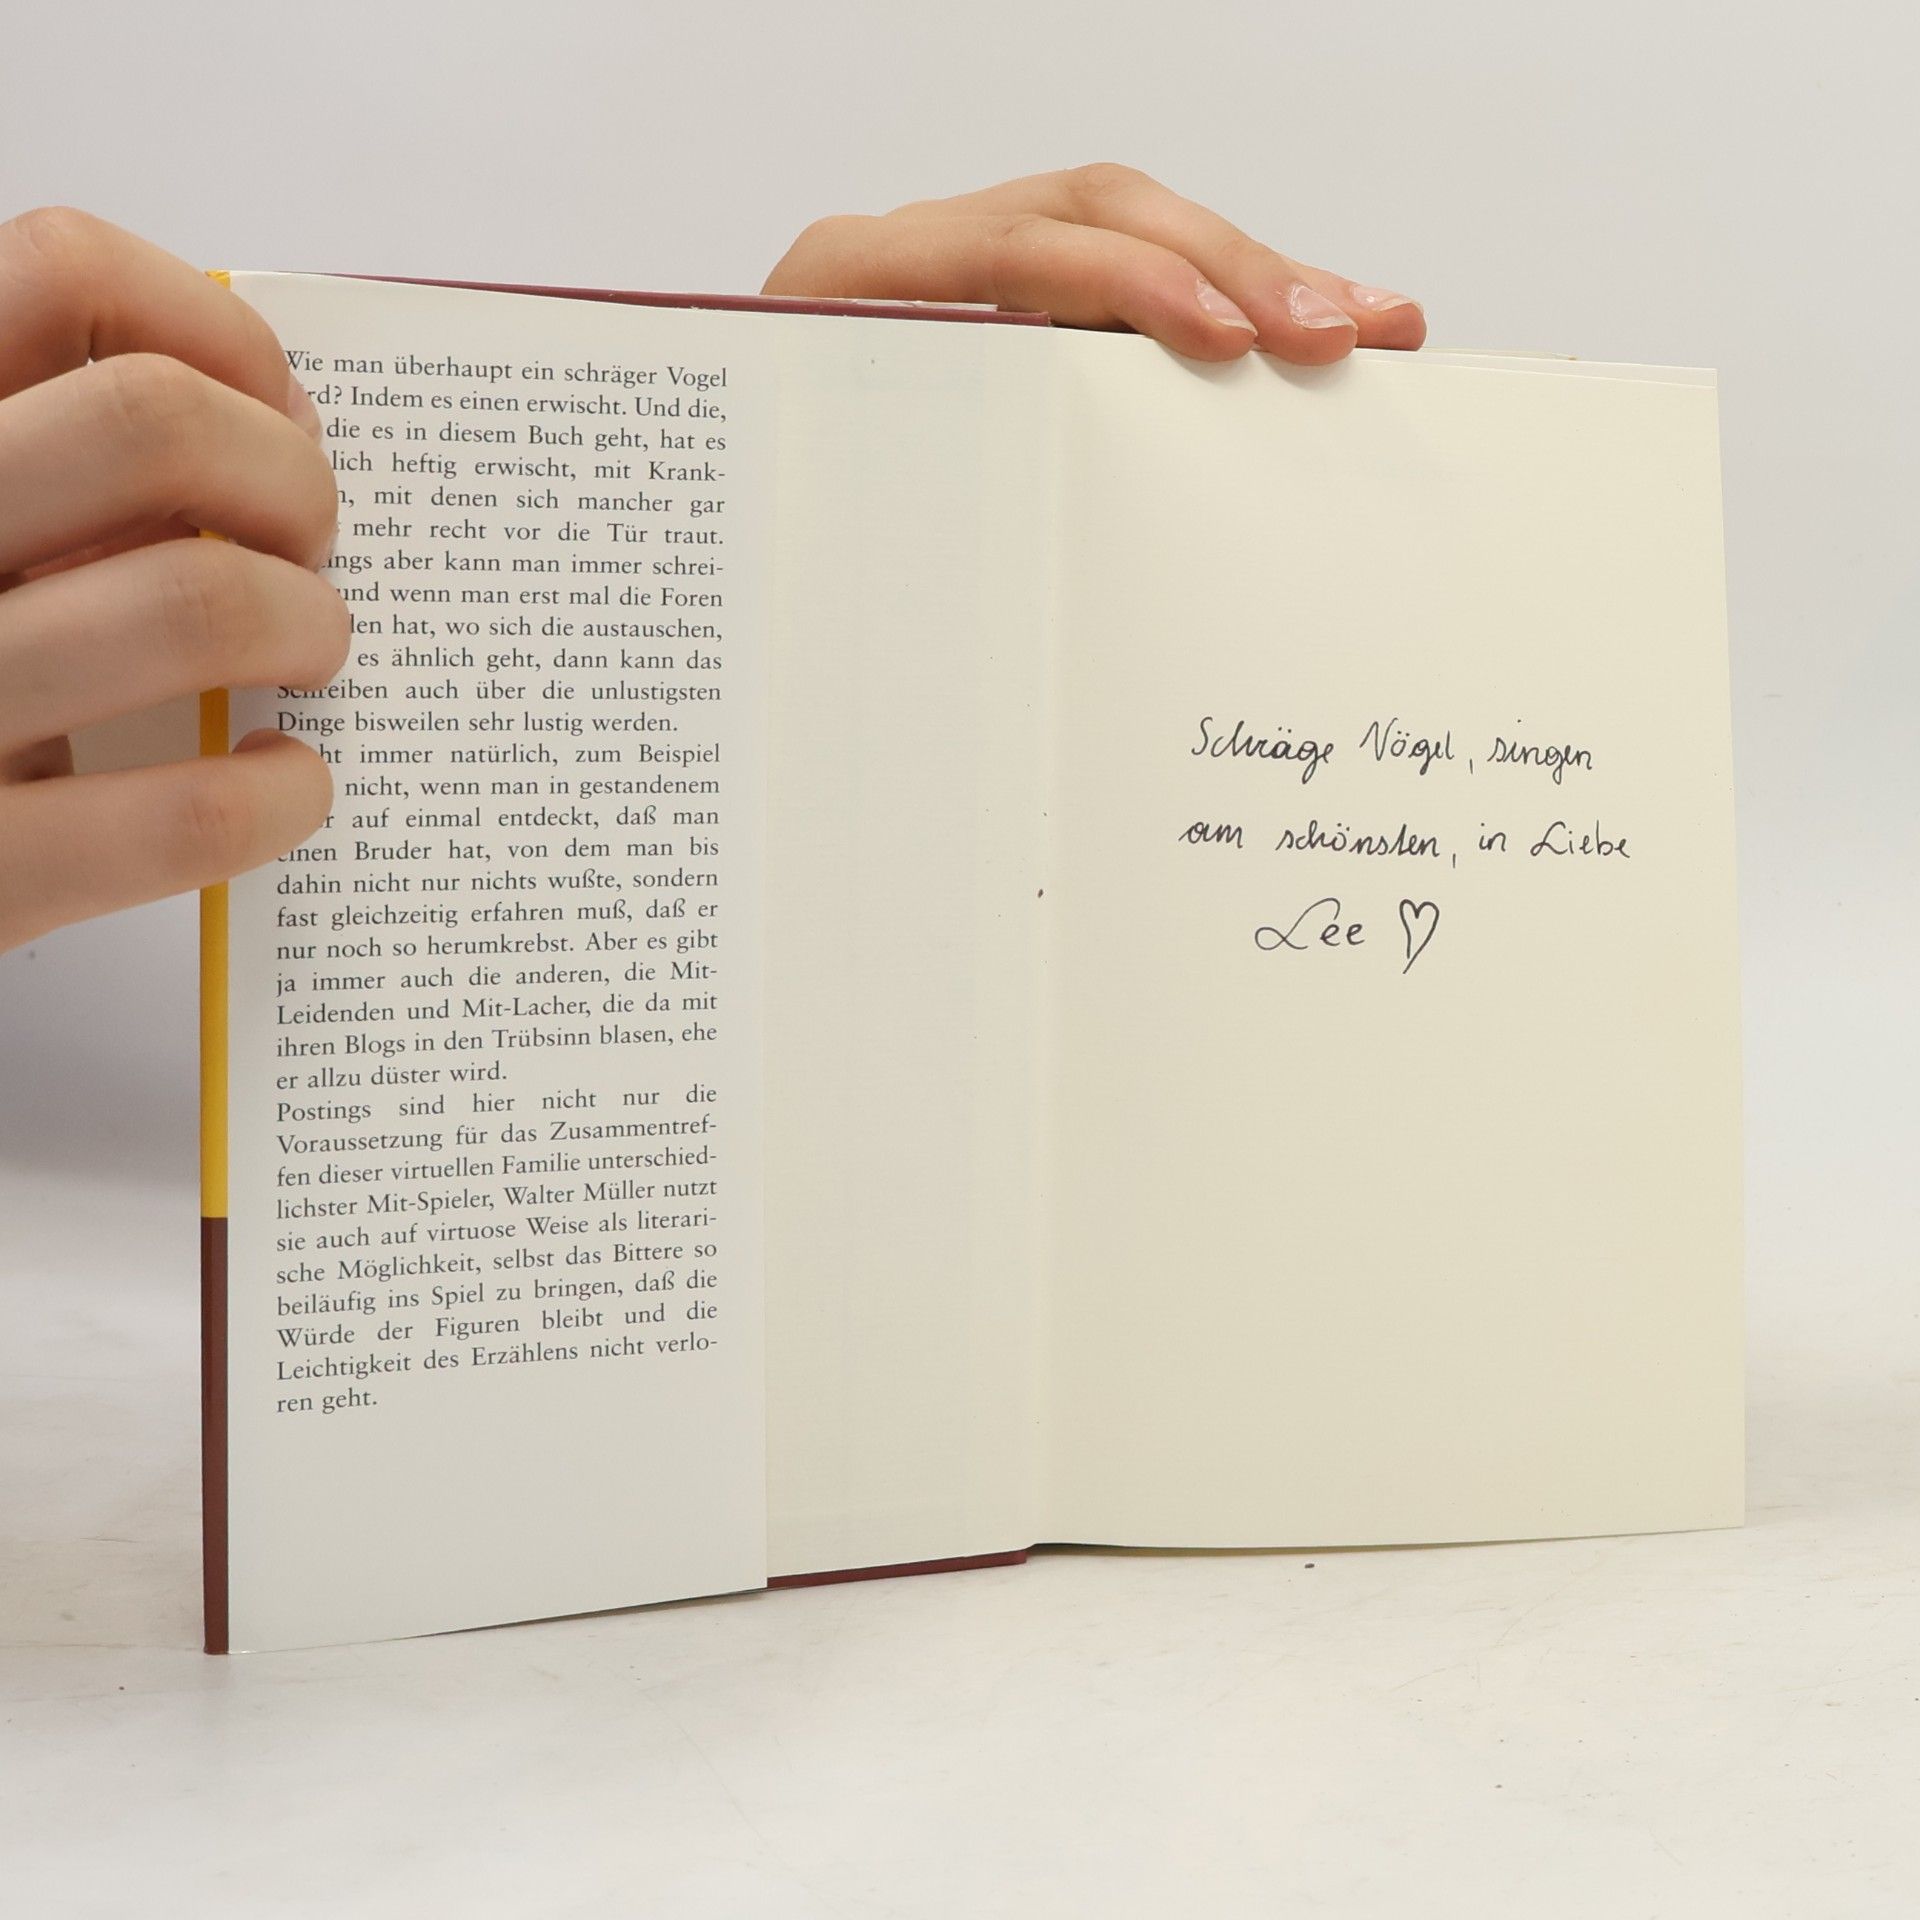 Wie man überhaupt ein schräger Vogel
rd? Indem es einen erwischt. Und die,
die es in diesem Buch geht, hat es
lich heftig erwischt, mit Krank-
n, mit denen sich mancher gar
mehr recht vor die Tür traut.
ings aber kann man immer schrei-
und wenn man erst mal die Foren
den hat, wo sich die austauschen,
es ähnlich geht, dann kann das
Schreiben auch über die unlustigsten
Dinge bisweilen sehr lustig werden.
ht immer natürlich, zum Beispiel
nicht, wenn man in gestandenem
r auf einmal entdeckt, daß man
einen Bruder hat, von dem man bis
dahin nicht nur nichts wußte, sondern
fast gleichzeitig erfahren muß, daß er
nur noch so herumkrebst. Aber es gibt
ja immer auch die anderen, die Mit-
Leidenden und Mit-Lacher, die da mit
ihren Blogs in den Trübsinn blasen, ehe
er allzu düster wird.
Postings sind hier nicht nur die
Voraussetzung für das Zusammentref-
fen dieser virtuellen Familie unterschied-
lichster Mit-Spieler, Walter Müller nutzt
sie auch auf virtuose Weise als literari-
sche Möglichkeit, selbst das Bittere so
beiläufig ins Spiel zu bringen, daß die
Würde der Figuren bleibt und die
Leichtigkeit des Erzählens nicht verlo-
ren geht.
Schräge Vögel, singen
am schönsten, in Liebe
Lee ♡